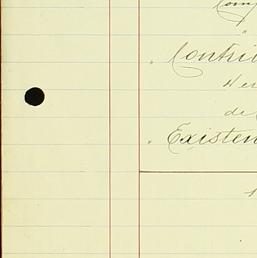 Comp
"
" Contri
de
" Existen